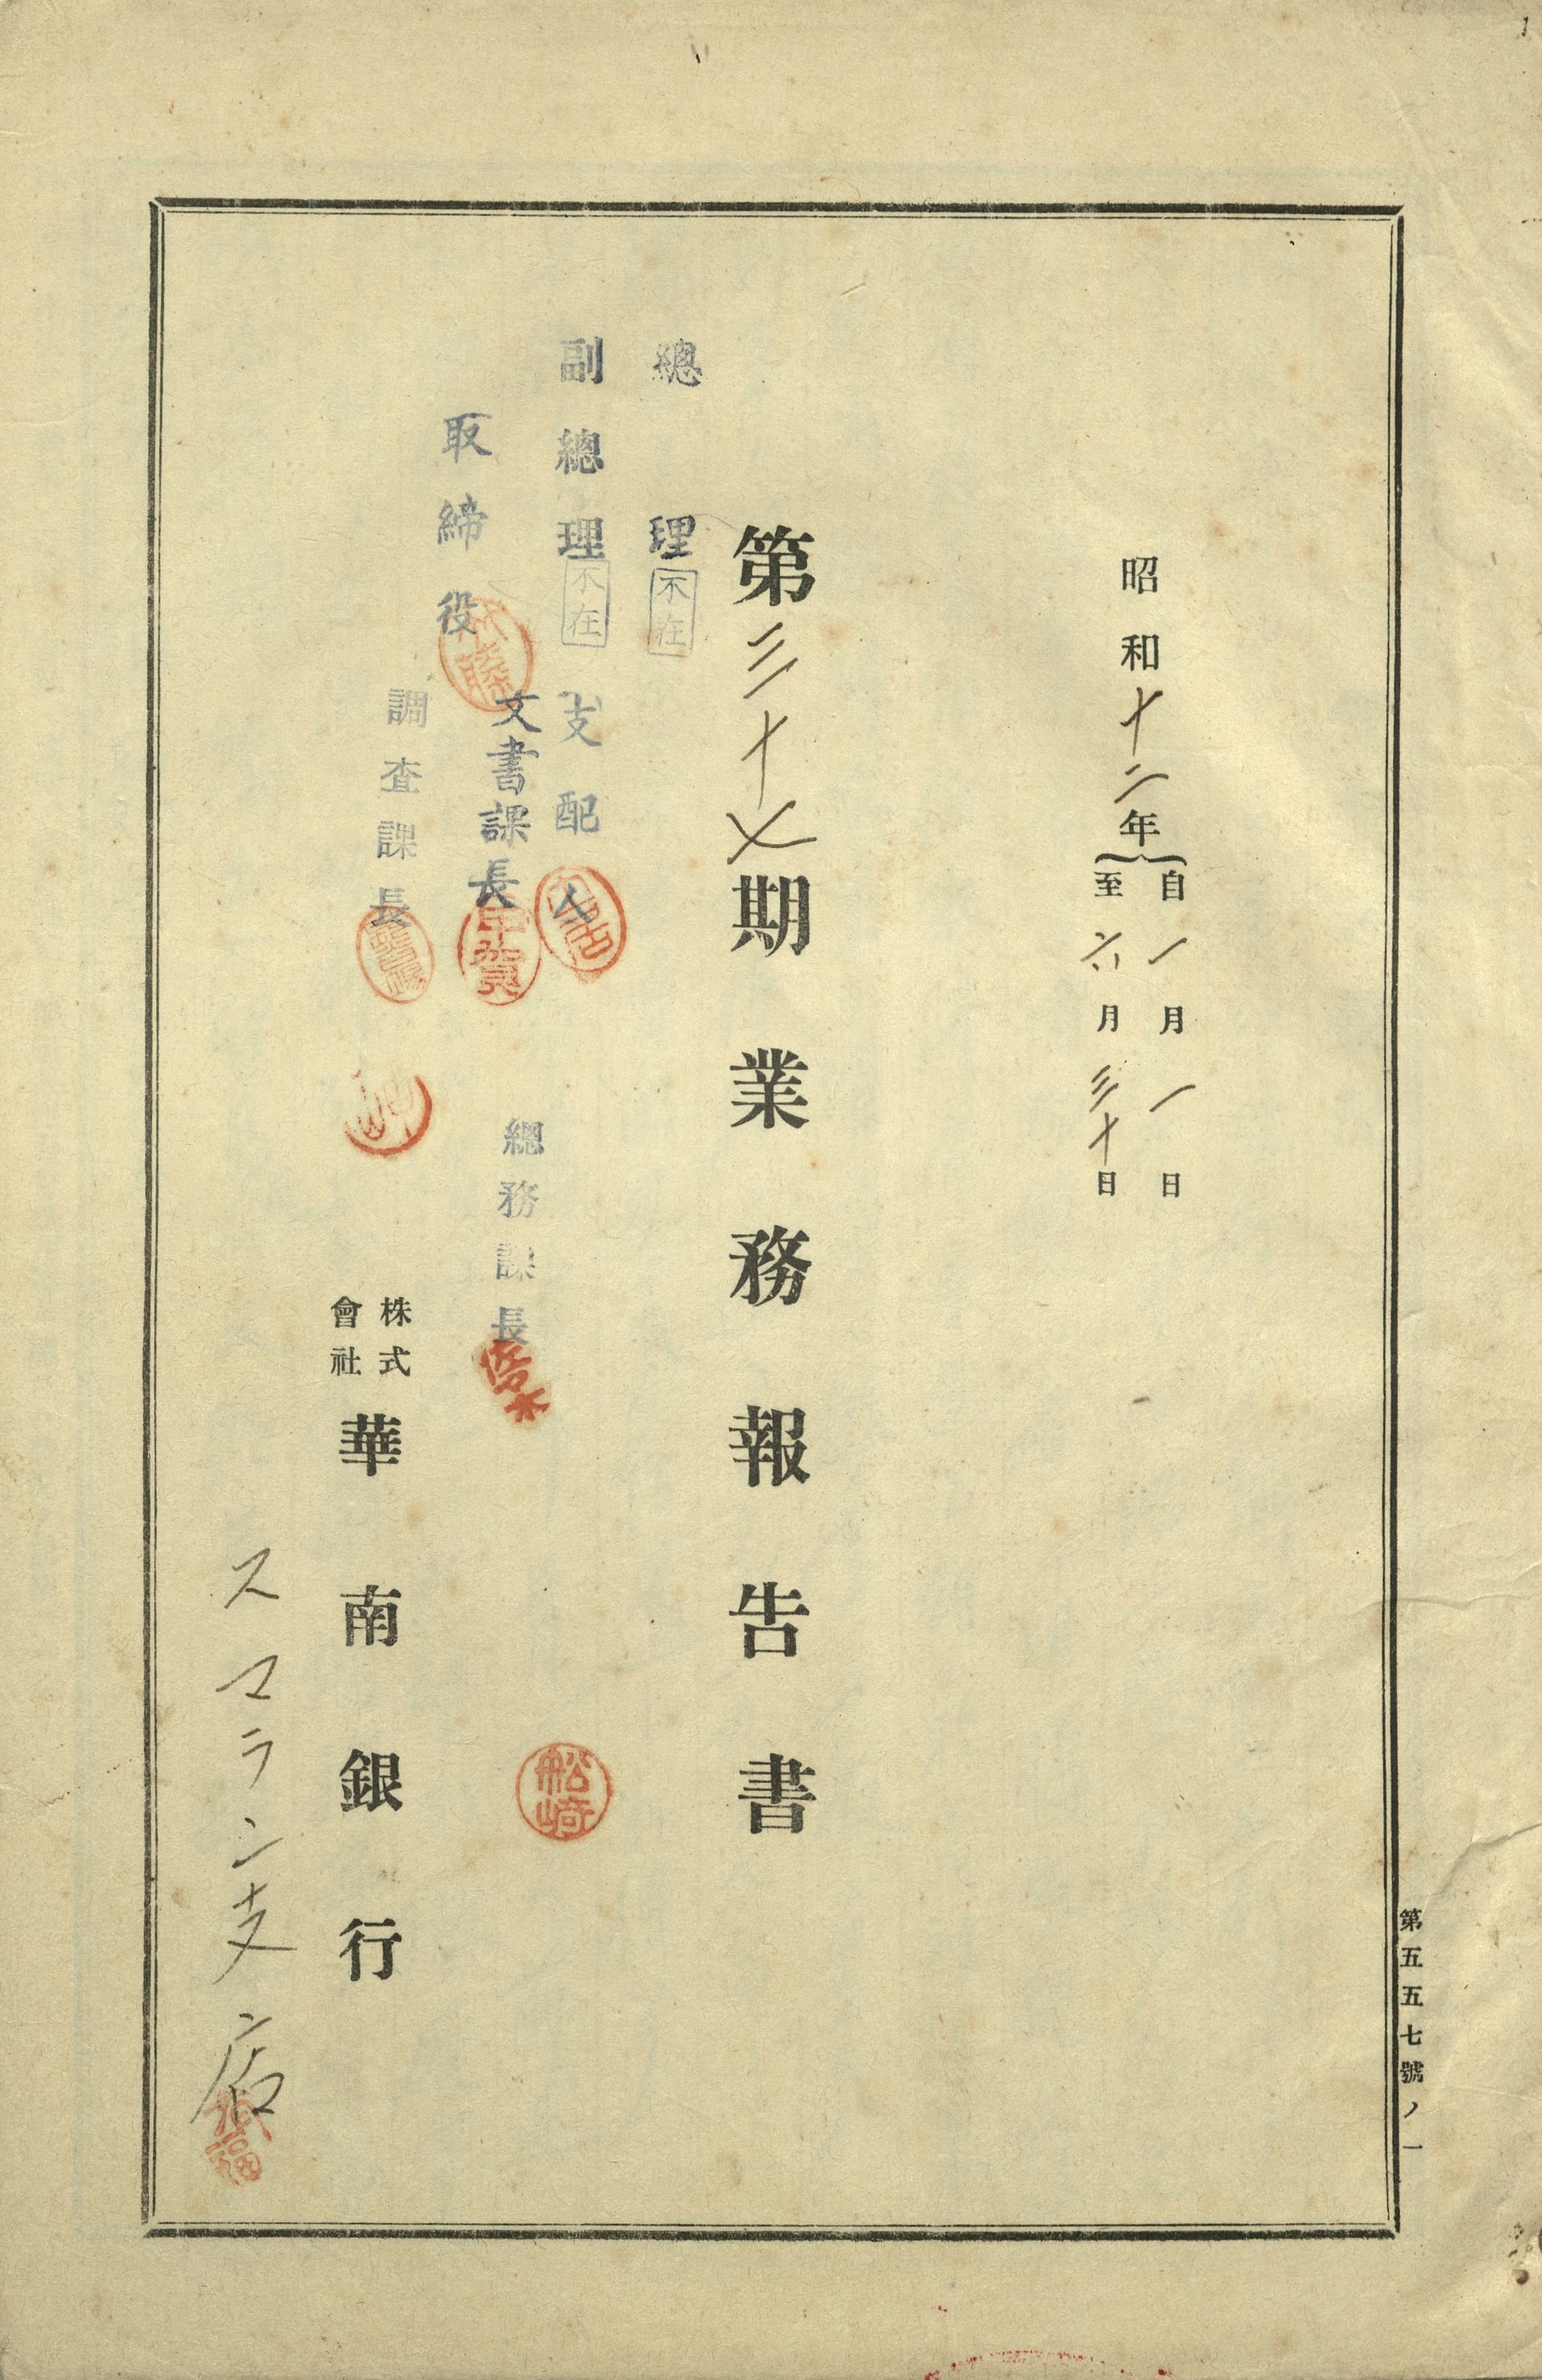 1
昭和十二年
自一月一日
至六月三十日
第三十七期業務報告書
總理
不在
副總理
不在
支配人
取締役
文書課長
甲賀
調査課長
總務課長
船崎
株式會社
華南銀行
スマラン支店
第五五七號ノ一